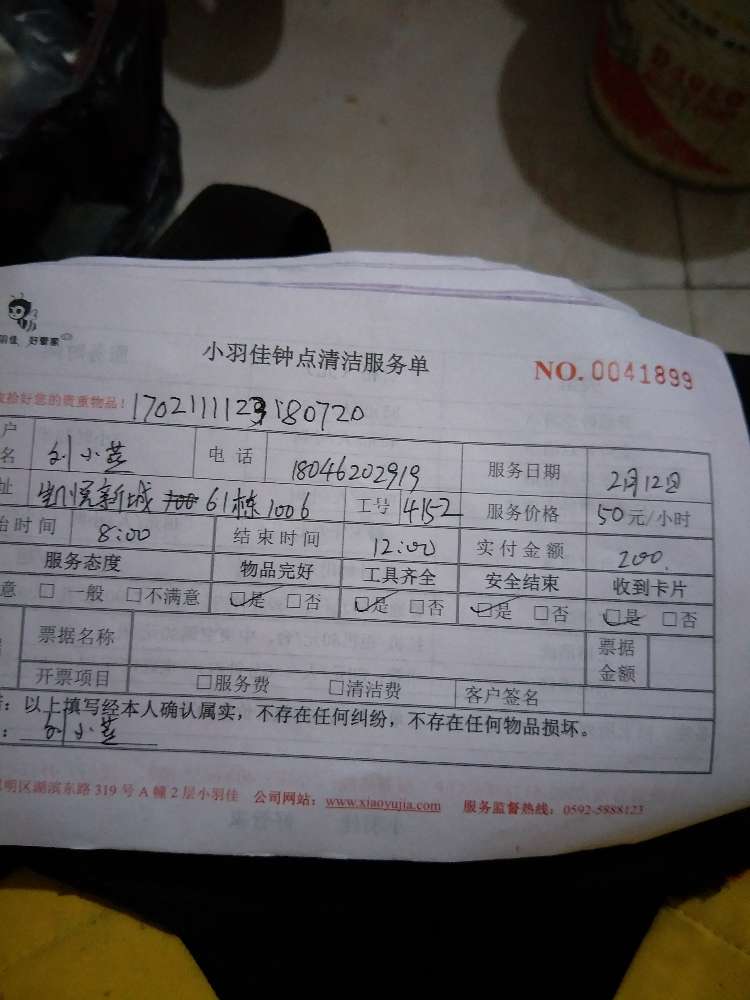 羽佳 好管家
小羽佳钟点清洁服务单
NO. 0041899
收拾好您的贵重物品！170211112380720
户名 刘小芸 电话 18046202919 服务日期 2月12日
址 凯悦新城 61栋1006 工号 4152 服务价格 50元/小时
始时间 8:00 结束时间 12:00 实付金额 200.
服务态度 物品完好 工具齐全 安全结束 收到卡片
意 □ 一般 □不满意 □是 □否 □是 □否 □是 □否 □是 □否
票据名称 票据金额
开票项目 □服务费 □清洁费 客户签名
：以上填写经本人确认属实，不存在任何纠纷，不存在任何物品损坏。
：刘小芸
明区湖滨东路 319 号 A 幢 2 层小羽佳 公司网站：www.xiaoyujia.com 服务监督热线：0592-5888123